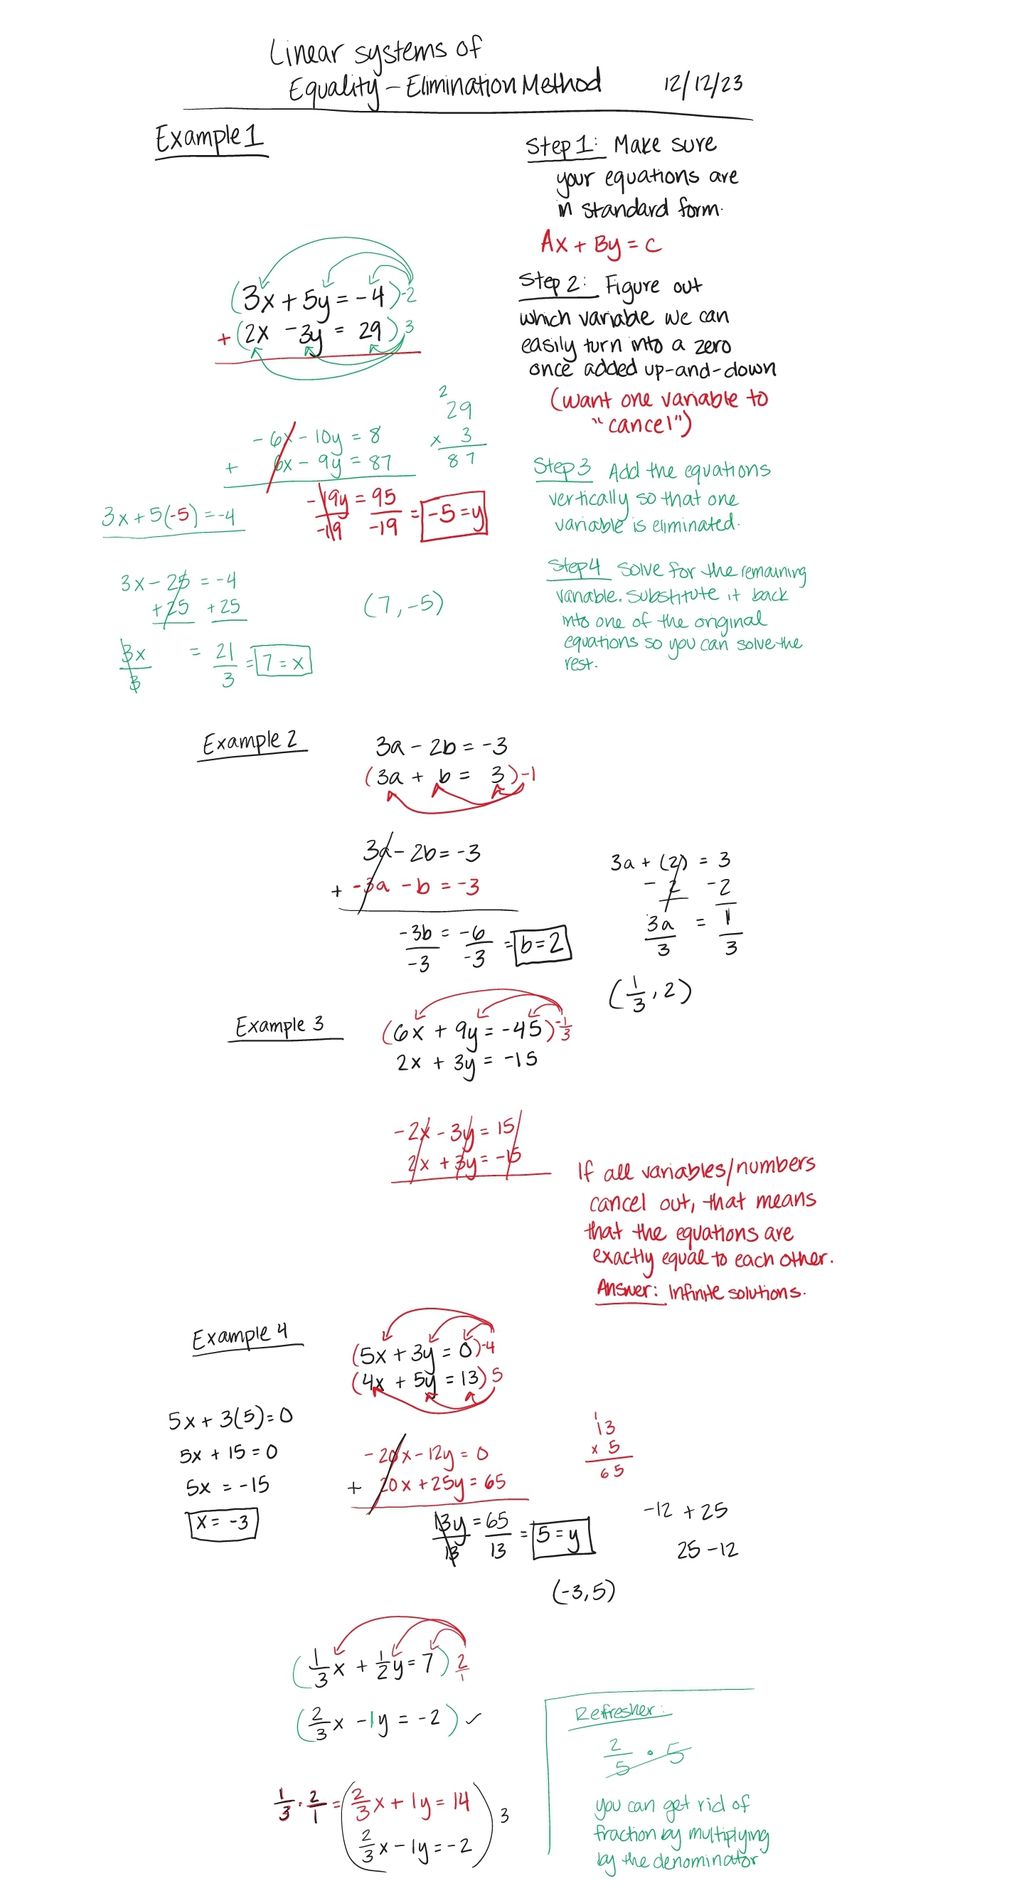 Linear systems of
Equality – Elimination Method 12/12/23
Example 1
Step 1: Make sure
your equations are
in standard form.
Ax + By = C
Step 2: Figure out
which variable we can
easily turn into a zero
once added up-and-down
(want one variable to
"cancel")
Step 3 Add the equations
vertically so that one
variable is eliminated.
Step 4 Solve for the remaining
variable. Substitute it back
into one of the original
equations so you can solve the
rest.
(3x + 5y = -4) -2
+ (2x - 3y = 29) 3
-6x - 10y = 8
+ 6x - 9y = 87
2
29
x 3
87
-19y/-19 = 95/-19 = -5 = y
3x + 5(-5) = -4
3x - 25 = -4
+25 +25
3x/3 = 21/3 = 7 = x
(7, -5)
Example 2
3a - 2b = -3
(3a + b = 3) -1
3a - 2b = -3
+ -3a - b = -3
-3b/-3 = -6/-3 = b = 2
3a + (2) = 3
-2 -2
3a/3 = 1/3
(1/3, 2)
Example 3
(6x + 9y = -45) -1/3
2x + 3y = -15
-2x - 3y = 15
2x + 3y = -15
If all variables/numbers
cancel out, that means
that the equations are
exactly equal to each other.
Answer: Infinite solutions.
Example 4
(5x + 3y = 0) -4
(4x + 5y = 13) 5
5x + 3(5) = 0
5x + 15 = 0
5x = -15
x = -3
-20x - 12y = 0
+ 20x + 25y = 65
13y/13 = 65/13 = 5 = y
1
13
x 5
65
-12 + 25
25 - 12
(-3, 5)
(1/3x + 1/2y = 7) 2/1
(2/3x - 1y = -2) ✓
1/3 · 2/1 = (2/3x + 1y = 14
2/3x - 1y = -2) 3
Refresher:
2/5 · 5
you can get rid of
fraction by multiplying
by the denominator